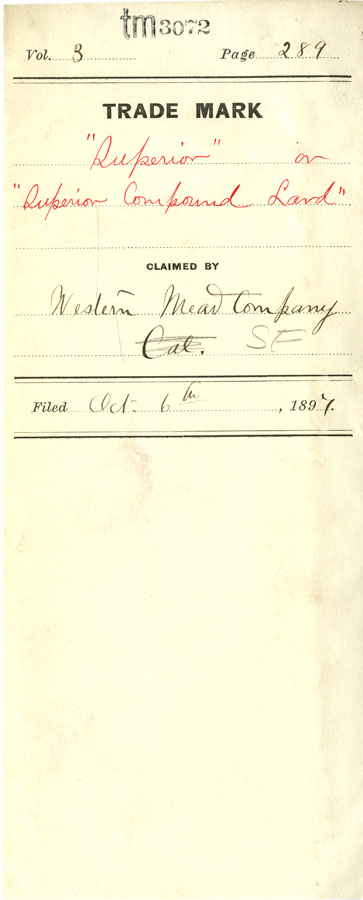 tm3072
Vol. 3 Page 289
TRADE MARK
"Superior" on
"Superior Compound Lard"
CLAIMED BY
Western Meat Company
Cal. SF
Filed Oct. 6th, 1897.